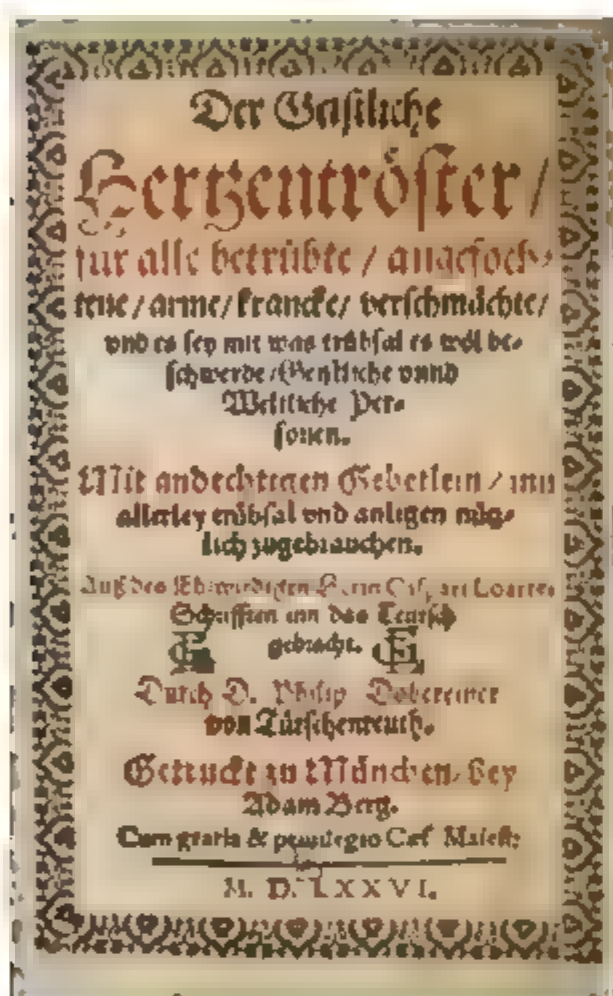 Der Geistliche
Hertzentröster /
für alle betrübte / angefoch⸗
tene / arme / krancke / verschmächte /
vnd es sey mit was trübsal es wöl be⸗
schwerde / Geistliche vnnd
Weltliche Per⸗
sonen.
Mit andechtigen Gebetlein / inn
allerley trübsal vnd anligen nütz⸗
lich zugebrauchen.
Auß des Ehrwirdigen Herrn Caspari Loartes
Schrifften inn das Teutsch
gebracht.
Durch D. Philip Dobereiner
von Türschenreuth.
Getruckt zu München / bey
Adam Berg.
Cum gratia & priuilegio Caes. Maiest:
M. D. LXXVI.